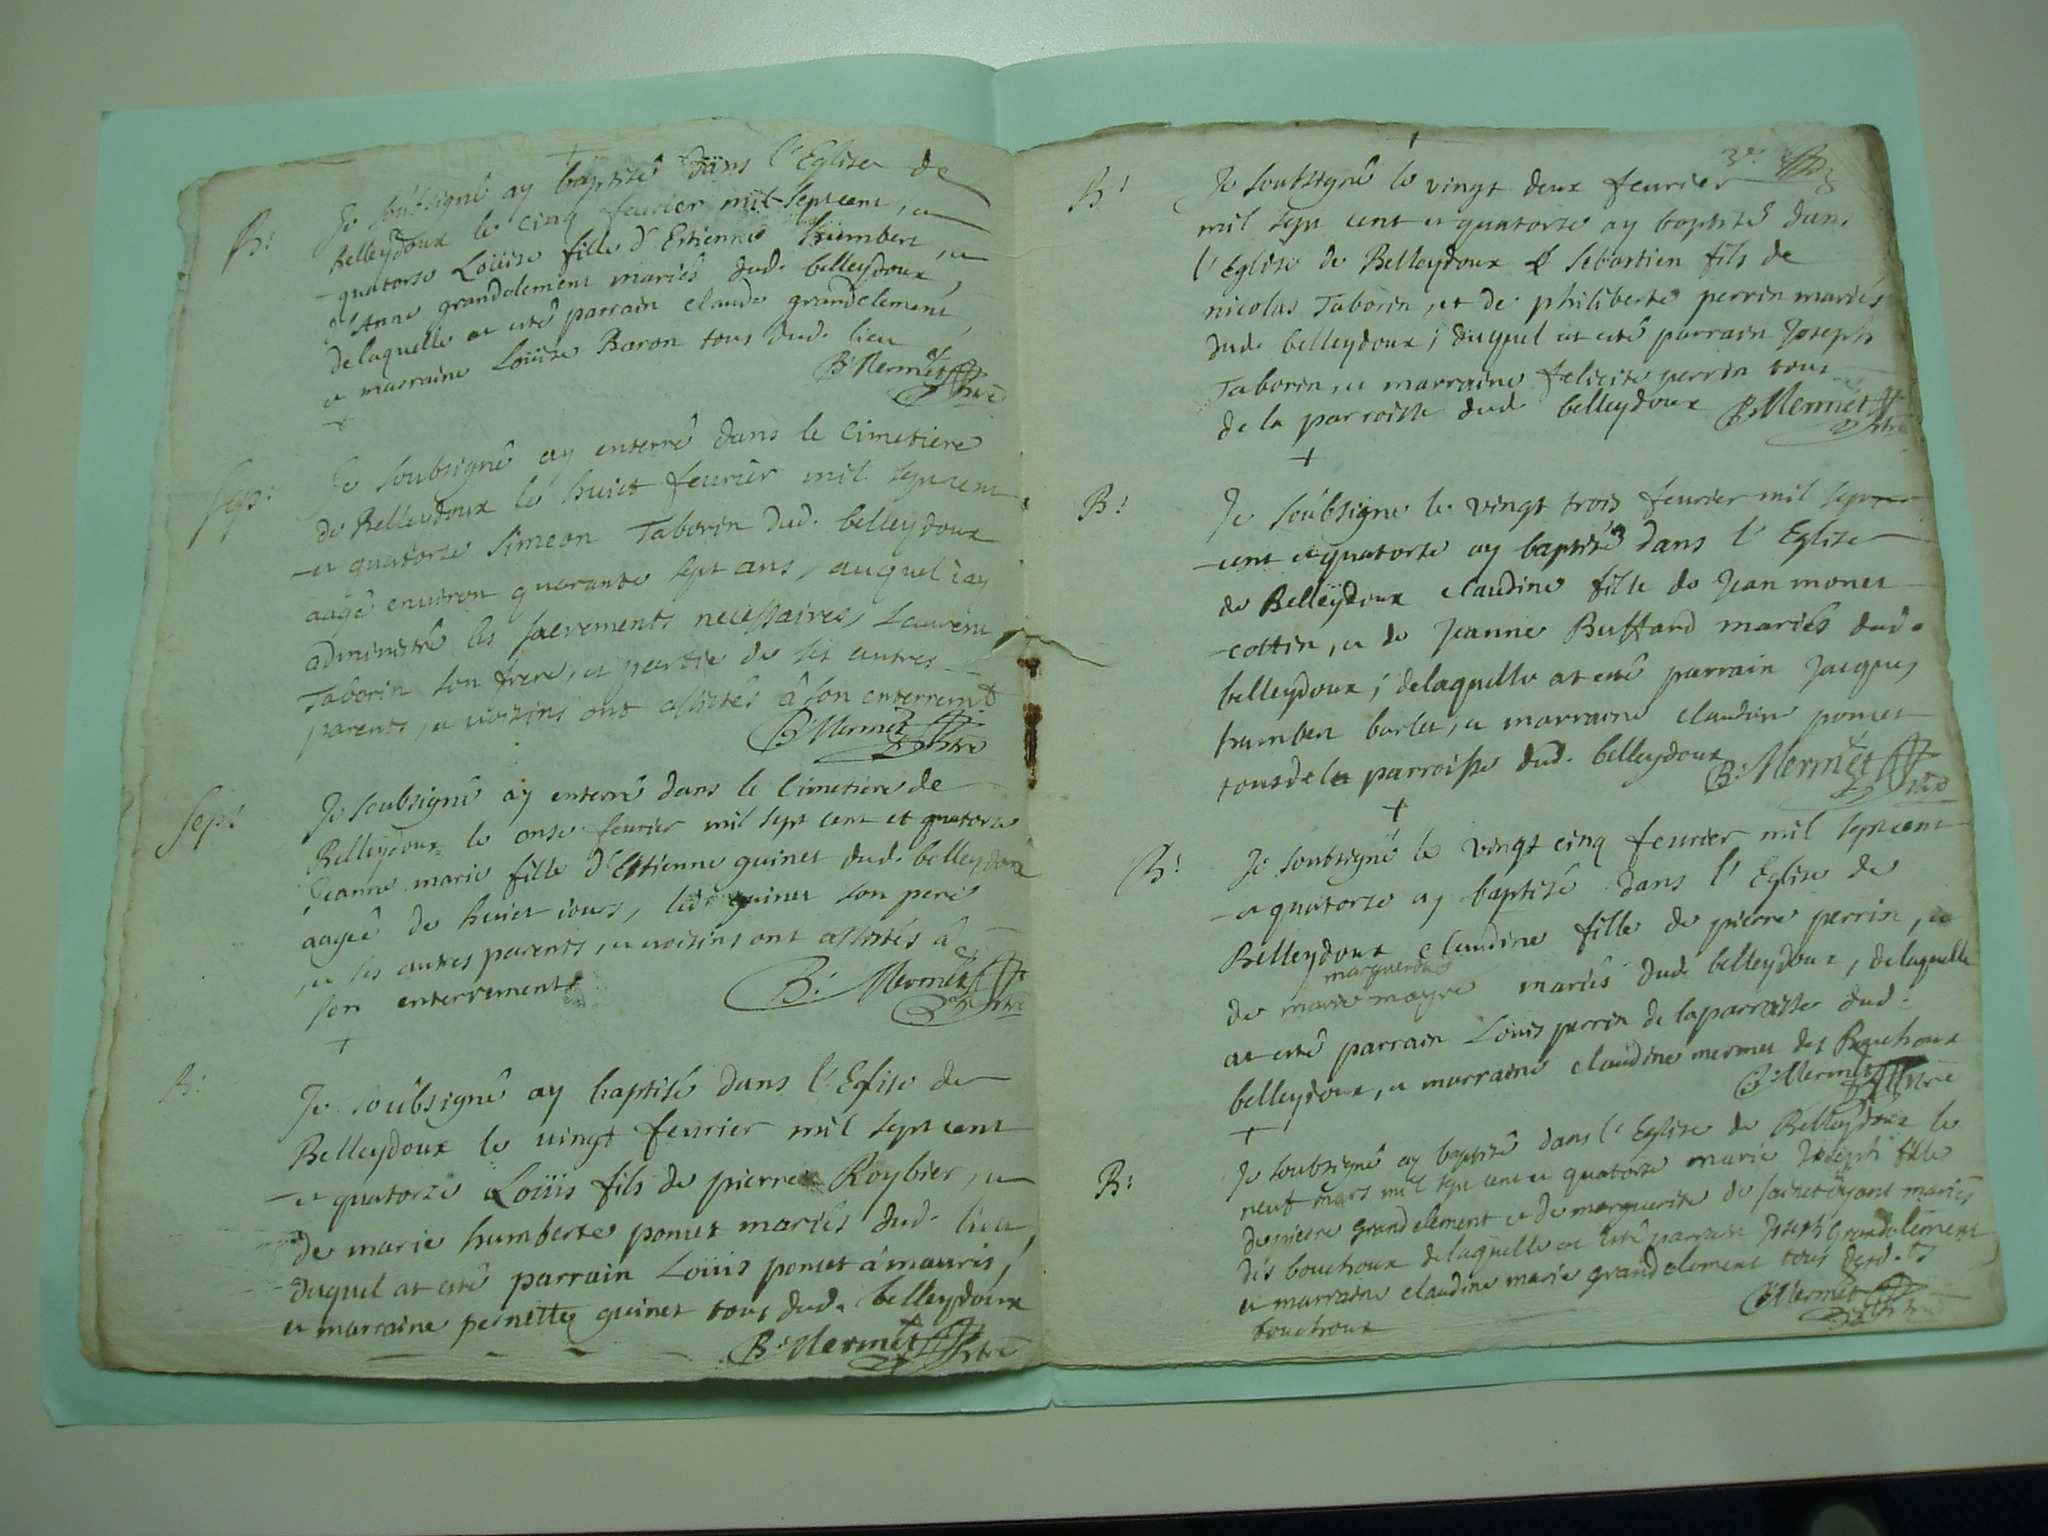 B:
Je soubsigné ay baptisé dans l'Eglise de
Belleydoux le cinq feurier mil sept cent, et
quatorse Loüise fille d'Estienne humbert, et
d'Anne grandclement mariés dud. belleydoux,
delaquelle at eté parrain claude grandclement,
et marraine Loüise Baron tous dud. lieu
B: Mermet ptre
Sep:
Je soubsigné ay enterré dans le Cimetiere
de Belleydoux le huict feurier mil sept cent
et quatorse Simeon Taborin dud. belleydoux
aagé enuiron quarante sept ans, auquel i'ay
administré les sacrements necessaires, Laurent
Taborin son frere, et partie de ses autres
parents, et uoisins ont assistés â son enterremt
B: Mermet ptre
Sep:
Je soubsigné ay enterré dans le Cimetiere de
Belleydoux le onse feurier mil sept cent et quatorse
Jeanne marie fille d'Estienne guinet dud. belleydoux
aageé de huict iours, led. guinet son pere
et ses autres parents, et uoisins ont assistés â
son enterrement
B: Mermet ptre
B:
Je soubsigné ay baptisé dans l'Eglise de
Belleydoux le uingt feurier mil sept cent
et quatorse Loüis fils de pierre Roybier, et
de marie humberte poncet mariés dud. lieu,
duquel at eté parrain Loüis poncet â mauris,
et marraine pernette guinet tous dud. belleydoux
B: Mermet ptre
3e
B:
Je soubsigné le vingt deux feurier
mil sept cent et quatorse ay baptisé dans
l'Eglise de Belleydoux Sebastien fils de
nicolas Taborin, et de philiberte perrin mariés
dud. belleydoux; duquel at eté parrain Joseph
Taborin, et marraine felicite perrin tous
de la parroisse dud. belleydoux
B: Mermet ptre
B:
Je soubsigné le vingt trois feurier mil sept
cent et quatorse ay baptisé dans l'Eglise
de Belleydoux claudine fille de Jean monet
cottin, et de Jeanne Buffard mariés dud.
belleydoux; delaquelle at eté parrain Jacques
humbert barlet, et marraine claudine poncet
tous de la parroisse dud. belleydoux
B: Mermet ptre
B:
Je soubsigné le vingt cinq feurier mil sept cent
et quatorse ay baptisé dans l'Eglise de
Belleydoux claudine fille de pierre perrin, et
marguerite
de marie mayre mariés dud. belleydoux, delaquelle
at eté parrain Loüis perrin de la parroisse dud.
belleydoux, et marraine claudine mermet des Bouchoux
B: Mermet ptre
B:
Je soubsigné ay baptisé dans l'Eglise de Belleydoux le
neuf mars mil sept cent et quatorse marie Joseph fille
de pierre grandclement et de marguerite de sainct oyant mariés
dés bouchoux delaquelle at eté parrain Joseph Grandclement
et marraine claudine marie grandclement tous desd. ts
bouchoux
B: Mermet ptre